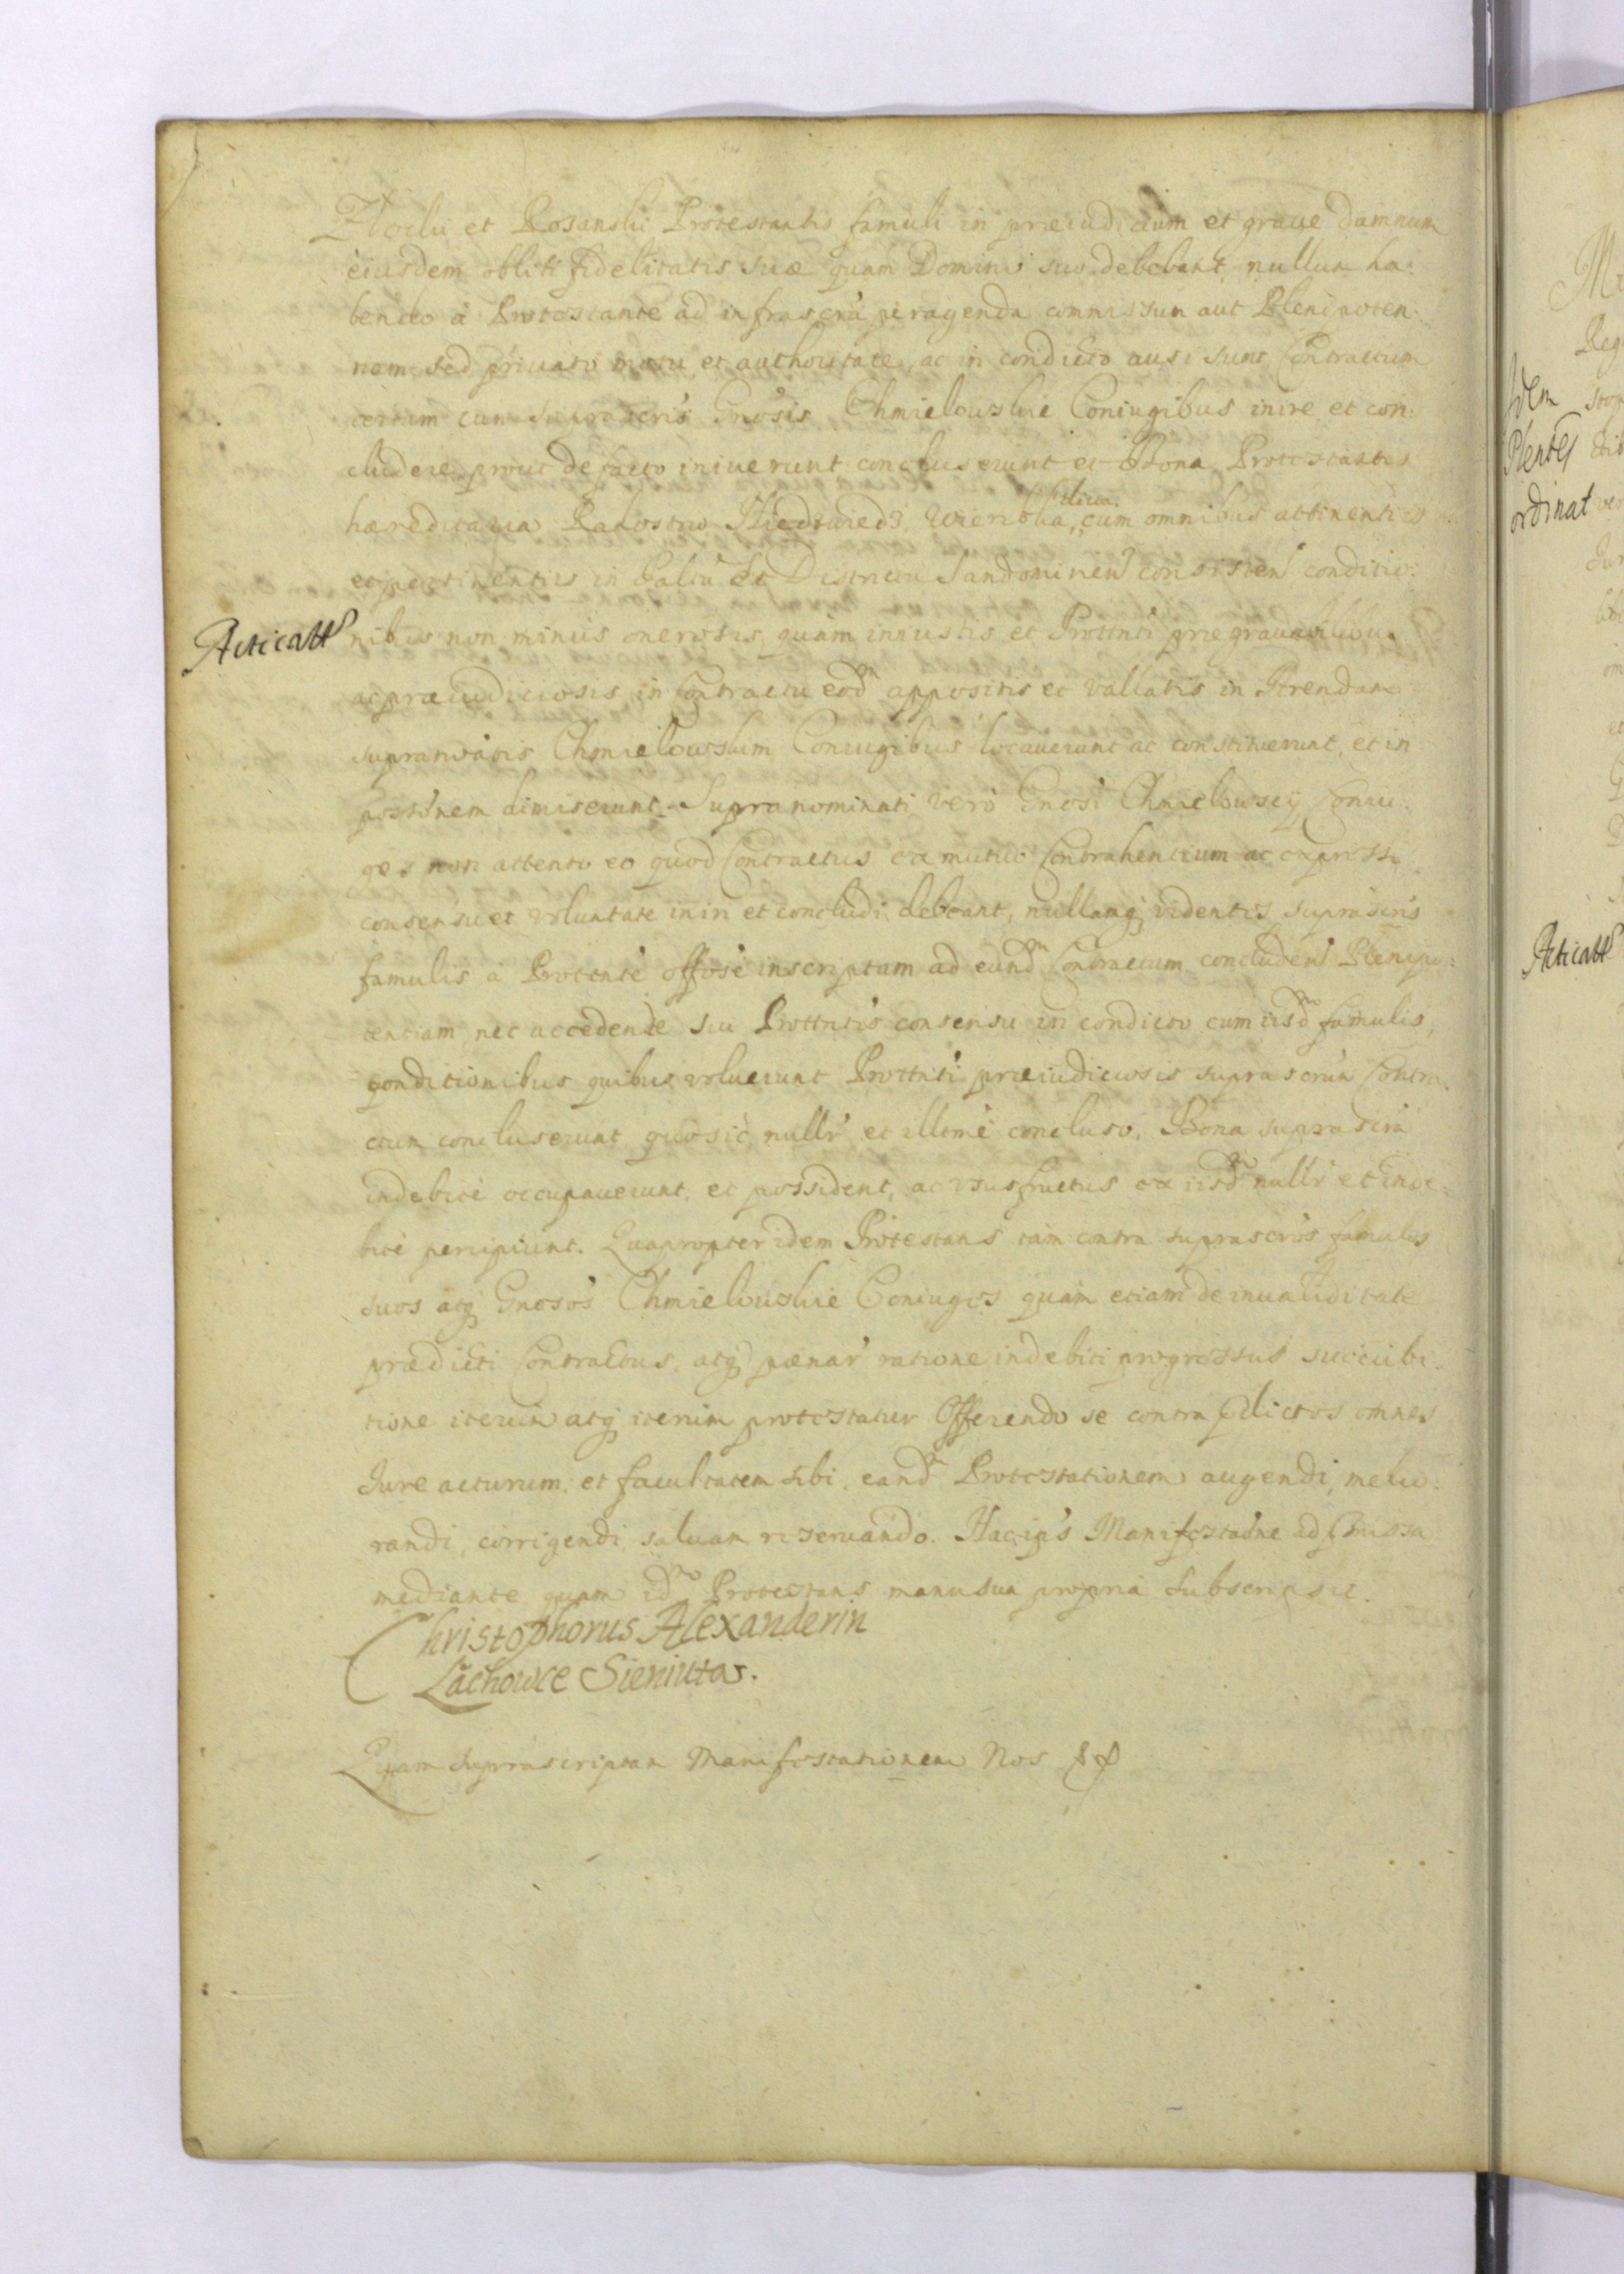 et Rosanski Protestantis famuli in præiudicium et graue damnum
eiusdem obliti fidelitatis suæ quam Domino suo debebant, nullum ha:
bendo à Protestante ad infrascrã peragenda commissum aut Plenipoten:
nem sed priuato motu et authoritate, ac in condicto ausi sunt Contractum
certum cum suprascris Gnosis Chmielowskie Coniugibus inire et con:
cludere prout de facto iniuerunt concluserunt et Bona Protestantis
hæreditaria Rakostw Niedzwiedz, Wierzbka, cum omnibus attinentiis
et pertinentiis in Palatu et Districtu Sandomirien consisten conditio:
Acticatt
nibus non minus onerosis quàm iniustis et Prottnti prægrauabilibus
ac præiudiciosis in Contractu eodm appositis et vallatis in Arendam
supranoiatis Chmielowskim Coniugibus locauerunt ac constituerunt, et in
possinem dimiserunt. Supranominati verò Gnosi Chmielowscy Coniu:
ges non attento eo quod Contractus ex mutuo Contrahentium ac expresso
consensu et voluntate iniri et concludi debeant, nullamq videntes suprascris
famulis à Prottnte offose inscriptam ad eundm Contractum concluden Plenipo:
tentiam nec accedente suu Prottntis consensu in condicto cum iisdm famulis,
conditionibus quibus voluerunt Prottnti præiudiciosis suprascrum Contra:
ctum concluserunt, quo sic nullr et illtmè concluso, Bona suprascra
indebite occupauerunt, et possident, ac vsusfructus ex iisdm nullr et inde:
bite percipiunt. Quapropter idem Protestans tam contra suprascros famulos
suos atq Gnosos Chmielowskie Coniuges quàm etiam de inualiditate
prædicti Contractus, atq pænar ratione indebiti progressus succubi:
tione iterum atq iterum protestatur Offerendo se contra pdictos omnes
Iure acturum, et facultatem sibi, eandm Protestationem augendi, melio:
randi, corrigendi saluam reseruando. Hac ips Manifestatne admissa
mediante quam idm Protestans manu sua propria subscripsit.
Christophorus Alexander in
Lachowce Sieniuta.
Quam suprascriptam Manifestationem Nos
Idem
Plentes
ordinat
Acticatt